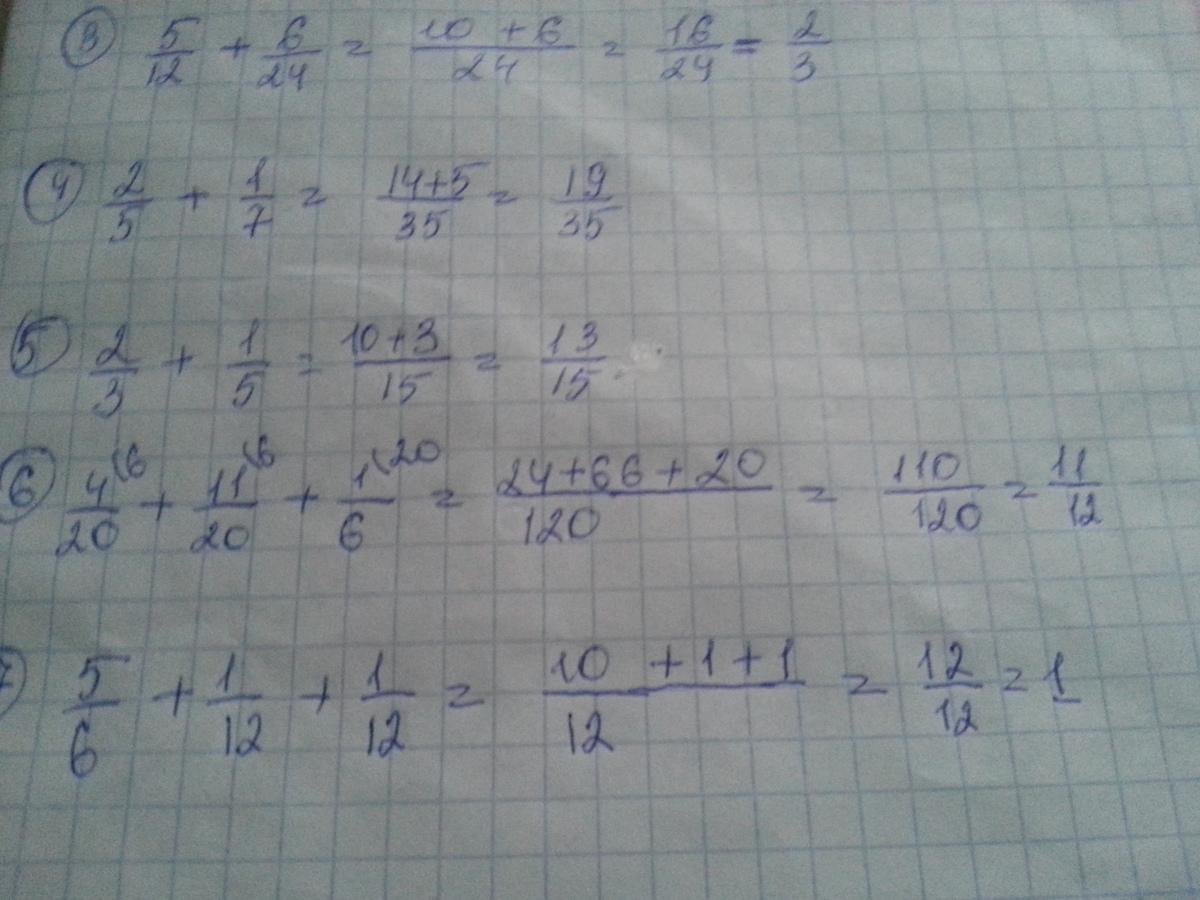 ③ 5/12 + 6/24 = (10 + 6)/24 = 16/24 = 2/3
④ 2/5 + 1/7 = (14+5)/35 = 19/35
⑤ 2/3 + 1/5 = (10+3)/15 = 13/15
⑥ 4(6/20 + 11(6/20 + 1(20/6 = (24+66+20)/120 = 110/120 = 11/12
7 5/6 + 1/12 + 1/12 = (10 + 1 + 1)/12 = 12/12 = 1